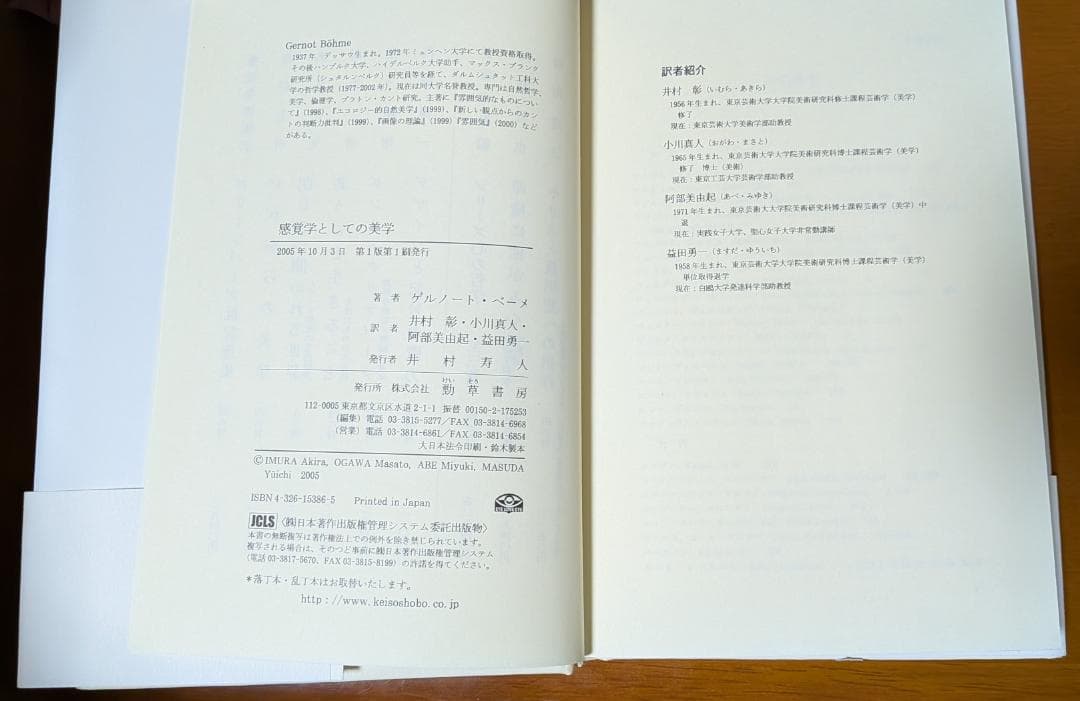 Gernot Böhme
1937年 デッサウ生まれ。1972年ミュンヘン大学にて教授資格取得。
その後ハンブルク大学、ハイデルベルク大学助手、マックス・プランク
研究所（シュタルンベルク）研究員等を経て、ダルムシュタット工科大
学の哲学教授（1977-2002年）。現在は同大学名誉教授。専門は自然哲学、
美学、倫理学、プラトン・カント研究。主著に『雰囲気的なものについ
て』（1998）、『エコロジー的自然美学』（1999）、『新しい観点からのカン
トの判断力批判』（1999）、『画像の理論』（1999）『雰囲気』（2000）など
がある。
感覚学としての美学
2005年10月3日 第1版第1刷発行
著 者 ゲルノート・ベーメ
訳 者 井村 彰・小川真人・
阿部美由起・益田勇一
発行者 井 村 寿 人
けい そう
発行所 株式会社 勁 草 書 房
112-0005 東京都文京区水道 2-1-1 振替 00150-2-175253
（編集）電話 03-3815-5277/FAX 03-3814-6968
（営業）電話 03-3814-6861/FAX 03-3814-6854
大日本法令印刷・鈴木製本
©IMURA Akira, OGAWA Masato, ABE Miyuki, MASUDA
Yūichi 2005
ISBN 4-326-15386-5 Printed in Japan
JCLS 〈㈱日本著作出版権管理システム委託出版物〉
本書の無断複写は著作権法上での例外を除き禁じられています。
複写される場合は、そのつど事前に㈱日本著作出版権管理システム
（電話 03-3817-5670、FAX 03-3815-8199）の許諾を得てください。
＊落丁本・乱丁本はお取替いたします。
http://www.keisoshobo.co.jp
訳者紹介
井村 彰（いむら・あきら）
1956年生まれ、東京芸術大学大学院美術研究科修士課程芸術学（美学）
修了
現在：東京芸術大学美術学部助教授
小川真人（おがわ・まさと）
1965年生まれ、東京芸術大学大学院美術研究科博士課程芸術学（美学）
修了 博士（美術）
現在：東京工芸大学芸術学部助教授
阿部美由起（あべ・みゆき）
1971年生まれ、東京芸術大大学院美術研究科博士課程芸術学（美学）中
退
現在：実践女子大学、聖心女子大学非常勤講師
益田勇一（ますだ・ゆういち）
1958年生まれ、東京芸術大学大学院美術研究科博士課程芸術学（美学）
単位取得退学
現在：白鷗大学発達科学部助教授